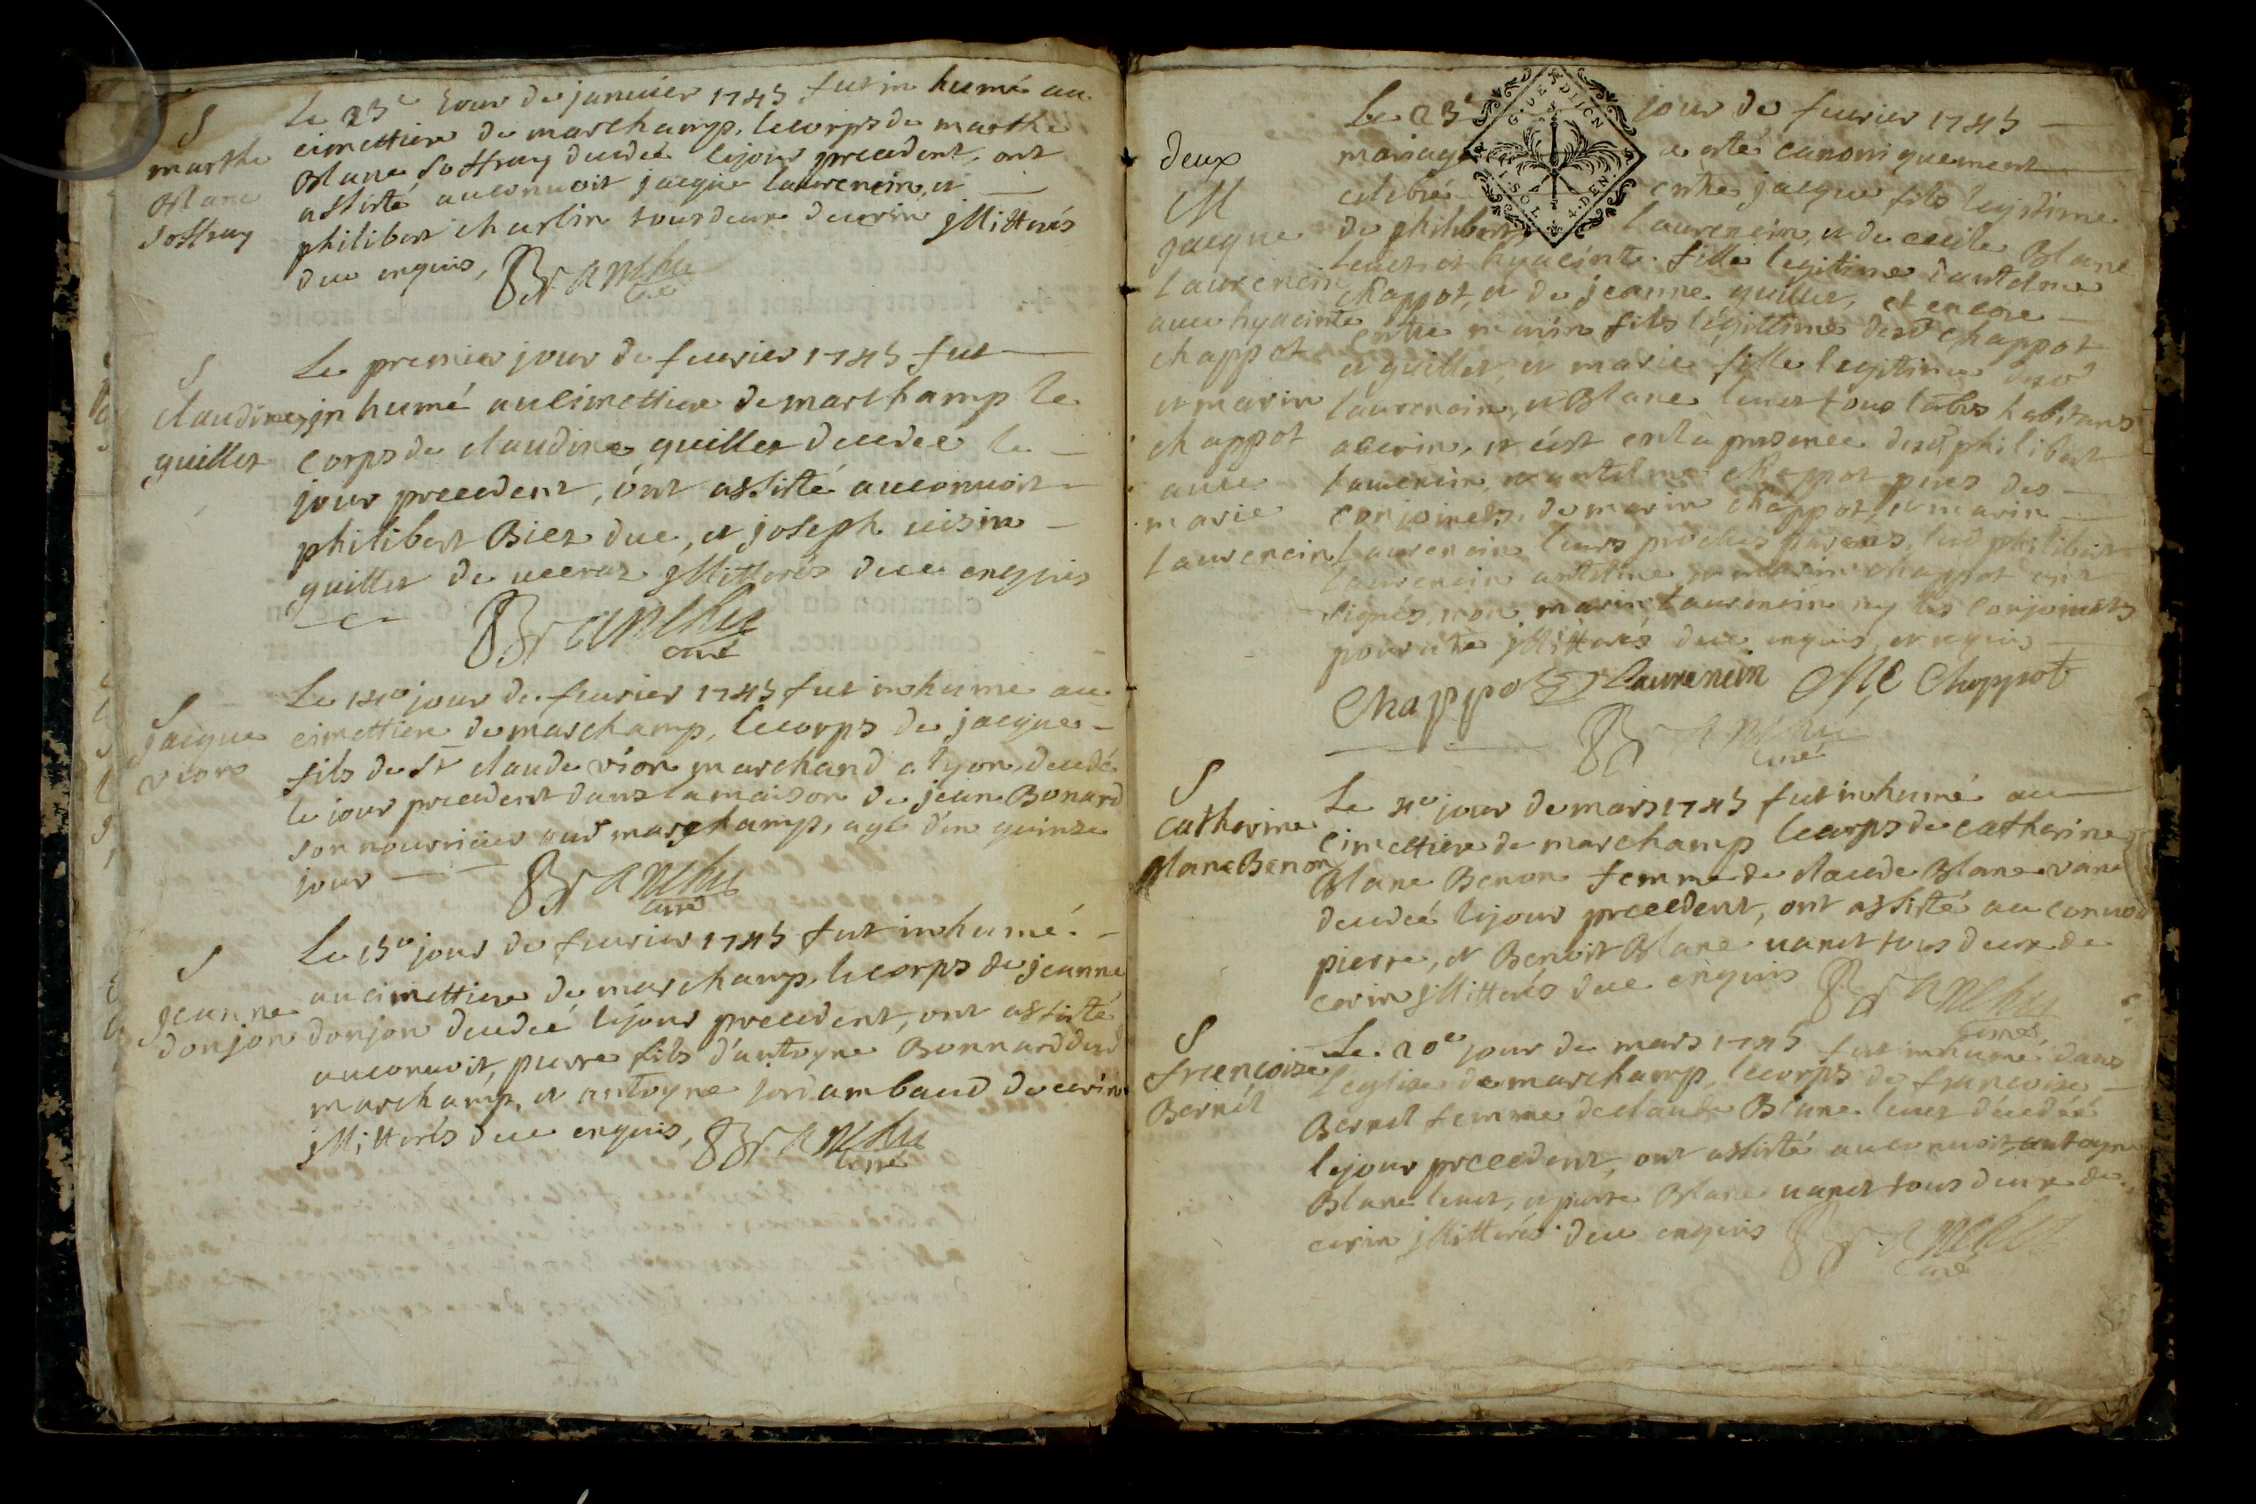 S
marthe
Blanc
Soffray
Le 23e Jour de januier 1745 fut in humé au
cimettiere de marchamp, le corps de marthe
Blanc Soffray decedeé le jour precedent, ont
assisté au conuoit jacque laurencin, et
philibert charlin tous deux de cerin jllitterés
due enquis, Branchu
curé
S
claudine
guillet
Le premier jour de feurier 1745 fut
jn humé au cimettiere de marchamp le
corps de claudine guillet decedeé le
jour precedent, ont assisté au conuoit
philibert Biez due, et joseph uisin
guillet de jllitterés due enquis
Branchu
curé
S
jacque
vion
Le 14e jour de feurier 1745 fut inhumé au
cimettiere de marchamp, le corps de jacque
fils de Sr claude vion marchand a lyon, decedé
le jour precedent dans la maison de jean Bonard
son nourricier dud marchamp, agé d'en quinze
jour
Branchu
curé
S
jeanne
donjon
Le 15e jour de feurier 1745 fut inhumé
au cimettiere de marchamp, le corps de jeanne
donjon decedeé le jour precedent, ont assisté
au conuoit, pierre fils d'antoyne Bonnard dud
marchamp, et antoyne jordambaud de cerin
jllitterés due enquis, Branchu
curé
deux
M
jacque
Laurencin
auec hyacinte
chappot
et marin
chappot
auec
marie
Laurencin
G. DE DIJON
1 SOL 4 DEN
Le 23e jour de feurier 1745
mariage a esté canoniquement
celebré entre jacque fils legitime
de philibert Laurencin, et de cecile Blanc
leuet et hyacinte fille legitime d'antelme
chappot, et de jeanne guillet, et encore
entre marin fils légittime desd chappot
et guillet, et marie fille legittime desd
laurencin, et Blanc leuet tous labrs habitans
a cerin, et c'est en la presence desd philibert
laurencin, et antelme chappot peres des
conjoincts, de marin chappot, et marin
Laurencin leurs proches parens, led philibert
laurencin antelme et marin chappot ont
signés, non marin laurencin ny les conjoincts
pour être jllitterés due enquis, et requis
Chappot Laurencin M C Chappot
Branchu
curé
S
Catherine
Blanc Benon
Le 4e jour de mars 1745 fut inhumé au
cimettiere de marchamp le corps de catherine
Blanc Benon femme de claude Blanc vanet
decedeé le jour precedent, ont assisté au conuoit
pierre, et Benoit Blanc uanet tous deux de
cerin jllitterés due enquis Branchu
curé
S
françoise
Bernét
Le 20e jour de mars 1745 fut inhumé dans
l'eglise de marchamp, le corps de françoise
Bernet femme de claude Blanc leuet décedeé
le jour precedent, ont assisté au conuoit, antoyne
Blanc leuet, et pierre Blanc uanet tous deux de
cerin jllitterés due enquis Branchu
curé